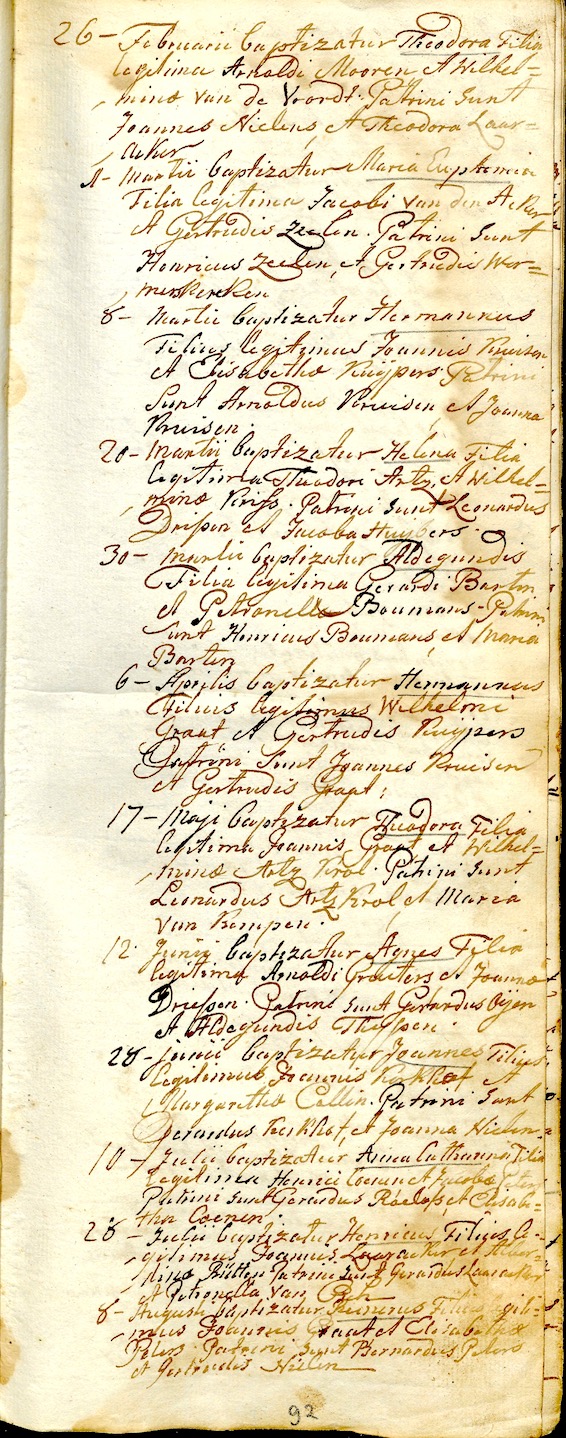 26 - Februarii baptizatur Theodora Filia
legitima Arnoldi Mooren, et Wilhel=
minæ van de Voordt. Patrini Sunt
Joannes Nielens, et Theodora Laar=
acker
1 - Martii baptizatur Maria Euphemia
Filia legitima Jacobi van den Acker
et Gertrudis Zeelen. Patrini Sunt
Henricus Zeelen, et Gertrudis Wer=
merskerken
8 - Martii baptizatur Hermannus
Filius legitimus Joannis Kruisen
et Elisabethæ Kuijpers Patrini
Sunt Arnoldus Kruisen, et Joanna
Kruisen.
20 - Martii baptizatur Helena Filia
legitima Theodori Artz, et Wilhel=
minæ Patrini Sunt Leonardus
Driessen et Jacoba Huijbers.
30 - Martii baptizatur Aldegundis
Filia legitima Gerardi Barten
et Petronellæ Boumans - Patrini
Sunt Henricus Boumans, et Maria
Barten
6 - Aprilis baptizatur Hermannus
Filius legitimus Wilhelmi
Graat et Gertrudis Kuijpers
Patrini Sunt Joannes Kruisen
et Gertrudis Graat.
17 - Maji baptizatur Theodora Filia
legitima Joannis Graat et Wilhel=
minæ Artz Krol. Patrini Sunt
Leonardus Artz Krol et Maria
van Kempen.
12 Junij baptizatur Agnes Filia
legitima Arnoldi et Joannæ
Driessen. Patrini Sunt Gerardus
et Aldegundis Thijssen.
28 - Junii baptizatur Joannes Filius
legitimus Joannis Kerkhof, et
Margarethæ Patrini Sunt
Gerardus Kerkhof, et Joanna Nielen
10 - Julii baptizatur Anna Catharina Filia
legitima Henrici Coenen et Jacobæ
Patrini Sunt Gerardus Roelofs, et Elisabe-
tha Coenen.
28 - Julii baptizatur Henricus Filius le-
gitimus Joannis Laaracker et
dinæ Rutten Patrini Sunt Gerardus Laaracker
et Petronella van
8 - Augusti baptizatur Filius legiti-
mus Joannis Graat et Elisabethæ
Peters. Patrini Sunt Bernardus Peters
et Gertrudis Nielen
92